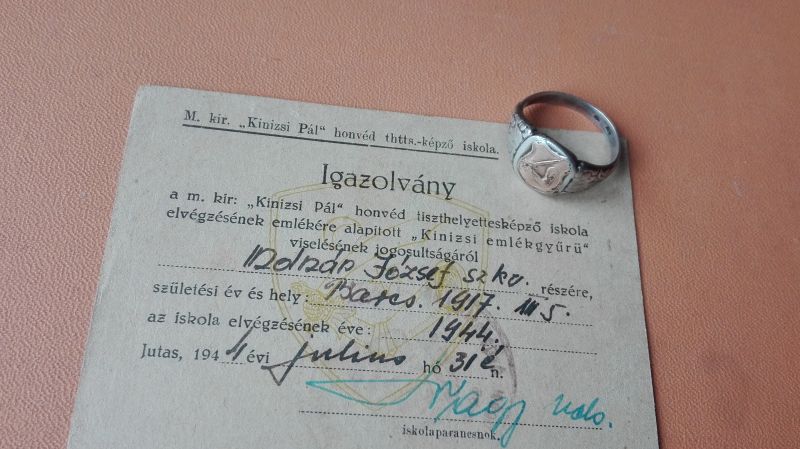 M. kir. „Kinizsi Pál" honvéd thtts.-képző iskola.
Igazolvány
a m. kir: „Kinizsi Pál" honvéd tiszthelyettesképző iskola
elvégzésének emlékére alapitott „Kinizsi emlékgyűrű"
viselésének jogosultságáról
József szkv. részére,
születési év és hely: Barcs. 1917. III 5.
az iskola elvégzésének éve: 1944.
Jutas, 194 4 évi julius hó 31 é n.
Nagy
iskolaparancsnok.